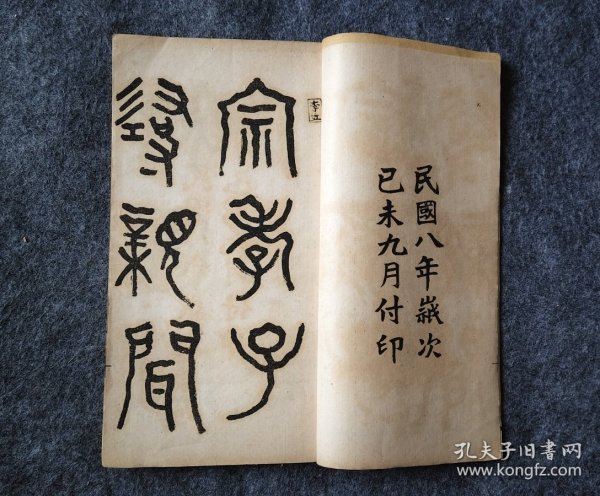 民國八年歲次
已未九月付印
李五
宗孝子
尋親間
孔夫子旧書网
www.kongfz.com